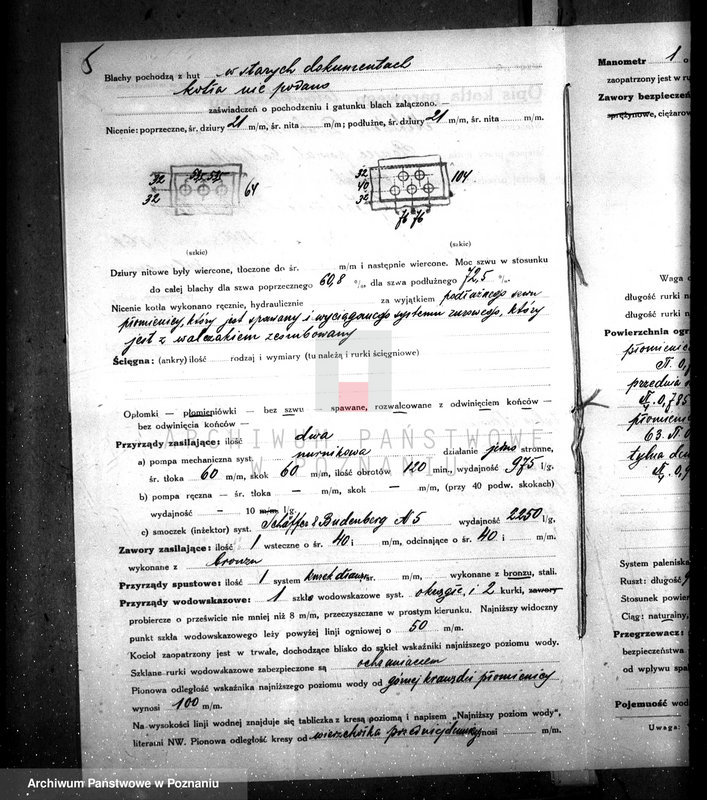 5
Blachy pochodzą z hut w starych dokumentach
kotła nie podano
zaświadczen o pochodzeniu i gatunku blach załączono.
Nicenie: poprzeczne, śr. dziury 21 m/m, śr. nita m/m; podłużne, śr. dziury 21 m/m, śr. nita m/m.
32 54 54 64
32
32
40
32 104
76 76
(szkic) (szkic)
Dziury nitowe były wiercone, tłoczone do śr. m/m i następnie wiercone. Moc szwu w stosunku
do całej blachy dla szwa poprzecznego 60,8 % dla szwa podłużnego 72,5 %.
Nicenie kotła wykonano ręcznie, hydraulicznie za wyjątkiem podłużnego szwu
płomienicy, który jest spawany i wyciąganego systemu rurowego, który
jest z walczakiem ześrubowany
Ścięgna: (ankry) ilość rodzaj i wymiary (tu należą i rurki ścięgniowe)
Opłomki — płomieniówki — bez szwu — spawane, rozwalcowane z odwinięciem końców —
bez odwinięcia końców
Przyrządy zasilające: ilość dwa
a) pompa mechaniczna syst. nurnikowa działanie jedno stronne,
śr. tłoka 60 m/m, skok 60 m/m, ilość obrotów 120 min., wydajność 975 l/g.
b) pompa ręczna — śr. tłoka — m/m, skok — m/m, (przy 40 podw. skokach)
wydajność — 10 m/m l/g.
c) smoczek (inżektor) syst. Schäffer & Budenberg N 5 wydajność 2250 l/g,
Zawory zasilające: ilość 1 wsteczne o śr. 40 i m/m, odcinające o śr. 40 i m/m.
wykonane z bronzu
Przyrządy spustowe: ilość 1 system kurek śr. m/m, wykonane z bronzu, stali.
Przyrządy wodowskazowe: 1 szkło wodowskazowe syst. okrągłe, i 2 kurki, zawory
probiercze o prześwicie nie mniej niż 8 m/m, przeczyszczane w prostym kierunku. Najniższy widoczny
punkt szkła wodowskazowego leży powyżej linji ogniowej o 50 m/m.
Kocioł zaopatrzony jest w trwałe, dochodzące blisko do szkieł wskaźniki najniższego poziomu wody.
Szklane rurki wodowskazowe zabezpieczone są ochraniaczem
Pionowa odległość wskaźnika najniższego poziomu wody od górnej krawędzi płomienicy
wynosi 100 m/m.
Na wysokości linji wodnej znajduje się tabliczka z kresą poziomą i napisem „Najniższy poziom wody",
literami NW. Pionowa odległość kresy od wierzchołka przedniej dennicy wynosi m/m.
Manometr 1 o
zaopatrzony jest w ru
Zawory bezpieczeń
sprężynowe, ciężarow
Waga c
długość rurki n
długość rurki n
Powierzchnia ogr
płomienic
π. 0,
przednia d
π/4. 0,785
płomieni
63. π. 0
tylna den
π/4. 0,9
System paleniska
Ruszt: długość
Stosunek powier
Ciąg: naturalny,
Przegrzewacz:
bezpieczeństwa
od wpływu spal
Pojemność wod
Uwaga:
ARCHIWUM PAŃSTWOWE
W POZNANIU
Archiwum Państwowe w Poznaniu